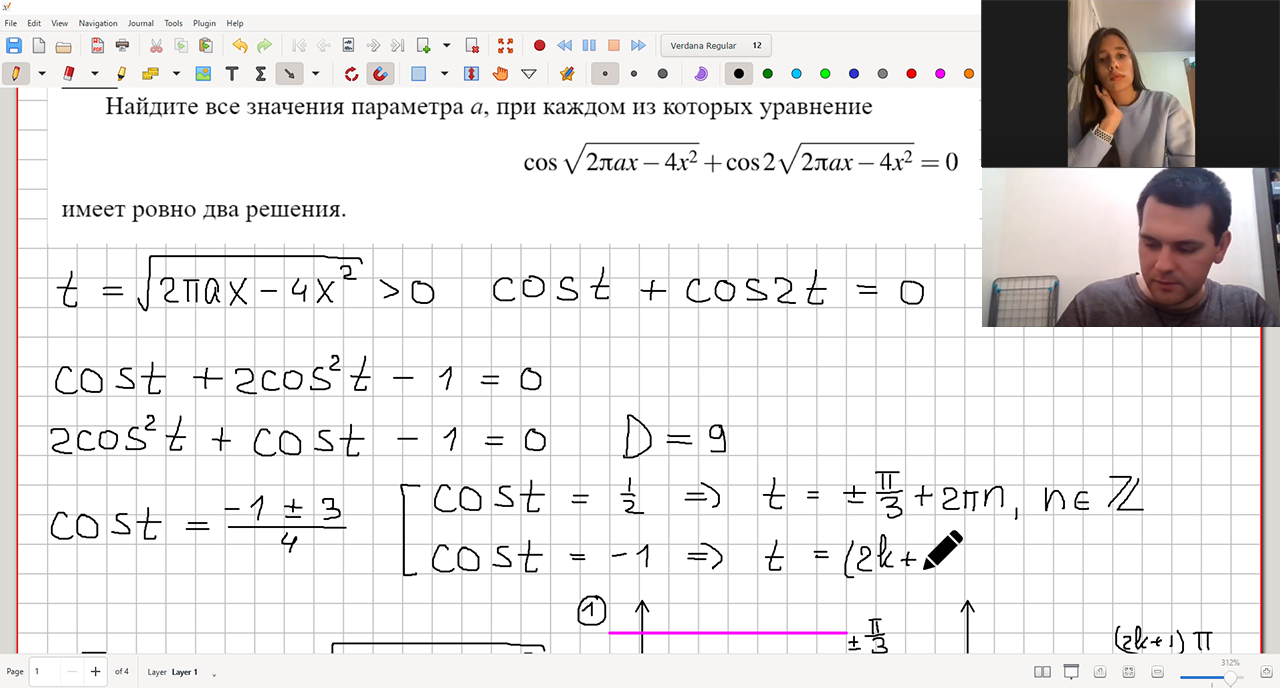 File Edit View Navigation Journal Tools Plugin Help
Verdana Regular 12
Найдите все значения параметра a, при каждом из которых уравнение
cos√(2πax − 4x²) + cos2√(2πax − 4x²) = 0
имеет ровно два решения.
t = √(2πax − 4x²) > 0 cost + cos2t = 0
cost + 2cos²t − 1 = 0
2cos²t + cost − 1 = 0 D = 9
cost = (−1 ± 3)/4
cost = 1/2 ⇒ t = ± π/3 + 2πn, n∈ℤ
cost = −1 ⇒ t = (2k+
1
± π/3
(2k+1)π
Page 1 of 4 Layer Layer 1
312%